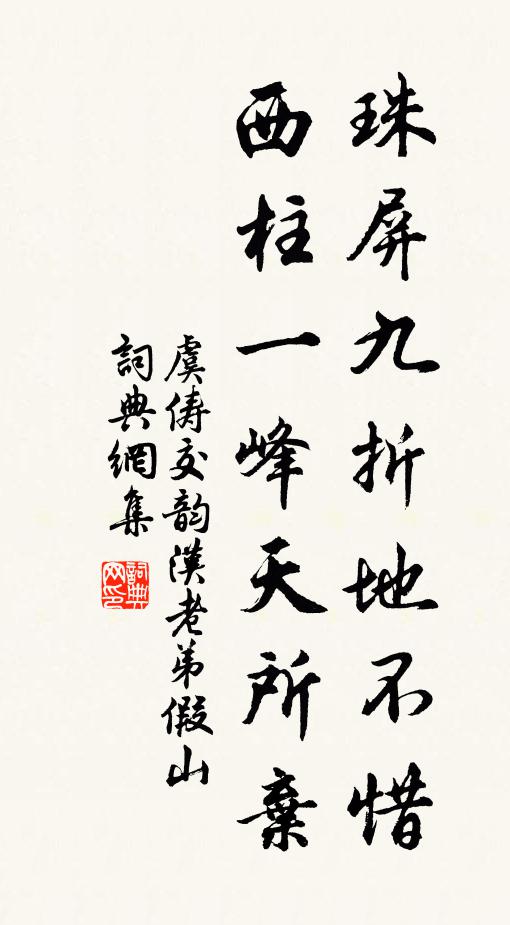 珠屏九折地不惜
西柱一峰天所棄
虞俦交韵漢老弟假山
詞典網集
詞典网印